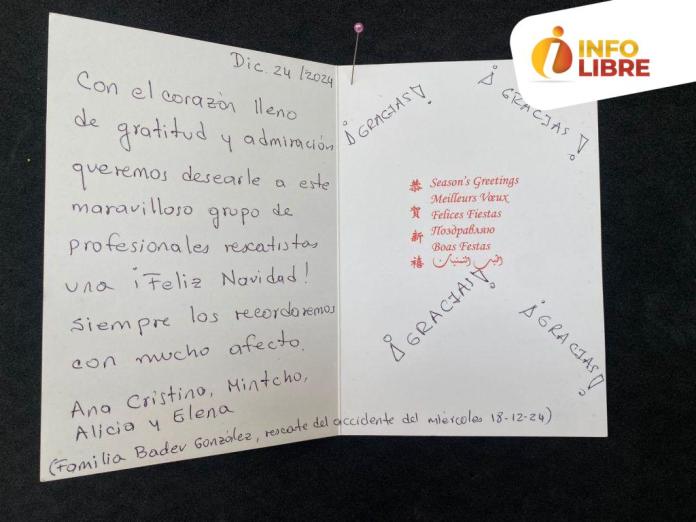 Dic. 24/2024
Con el corazón lleno
de gratitud y admiración
queremos desearle a este
maravilloso grupo de
profesionales rescatistas
una ¡Feliz Navidad!
siempre los recordaremos
con mucho afecto.
Ana Cristina, Mintcho,
Alicia y Elena
(Familia Badev González, rescate del accidente del miércoles 18-12-24)
¡GRACIAS!
¡GRACIAS!
恭賀新禧
Season's Greetings
Meilleurs Vœux
Felices Fiestas
Поздравляю
Boas Festas
¡GRACIAS!
¡GRACIAS!
INFO
LIBRE